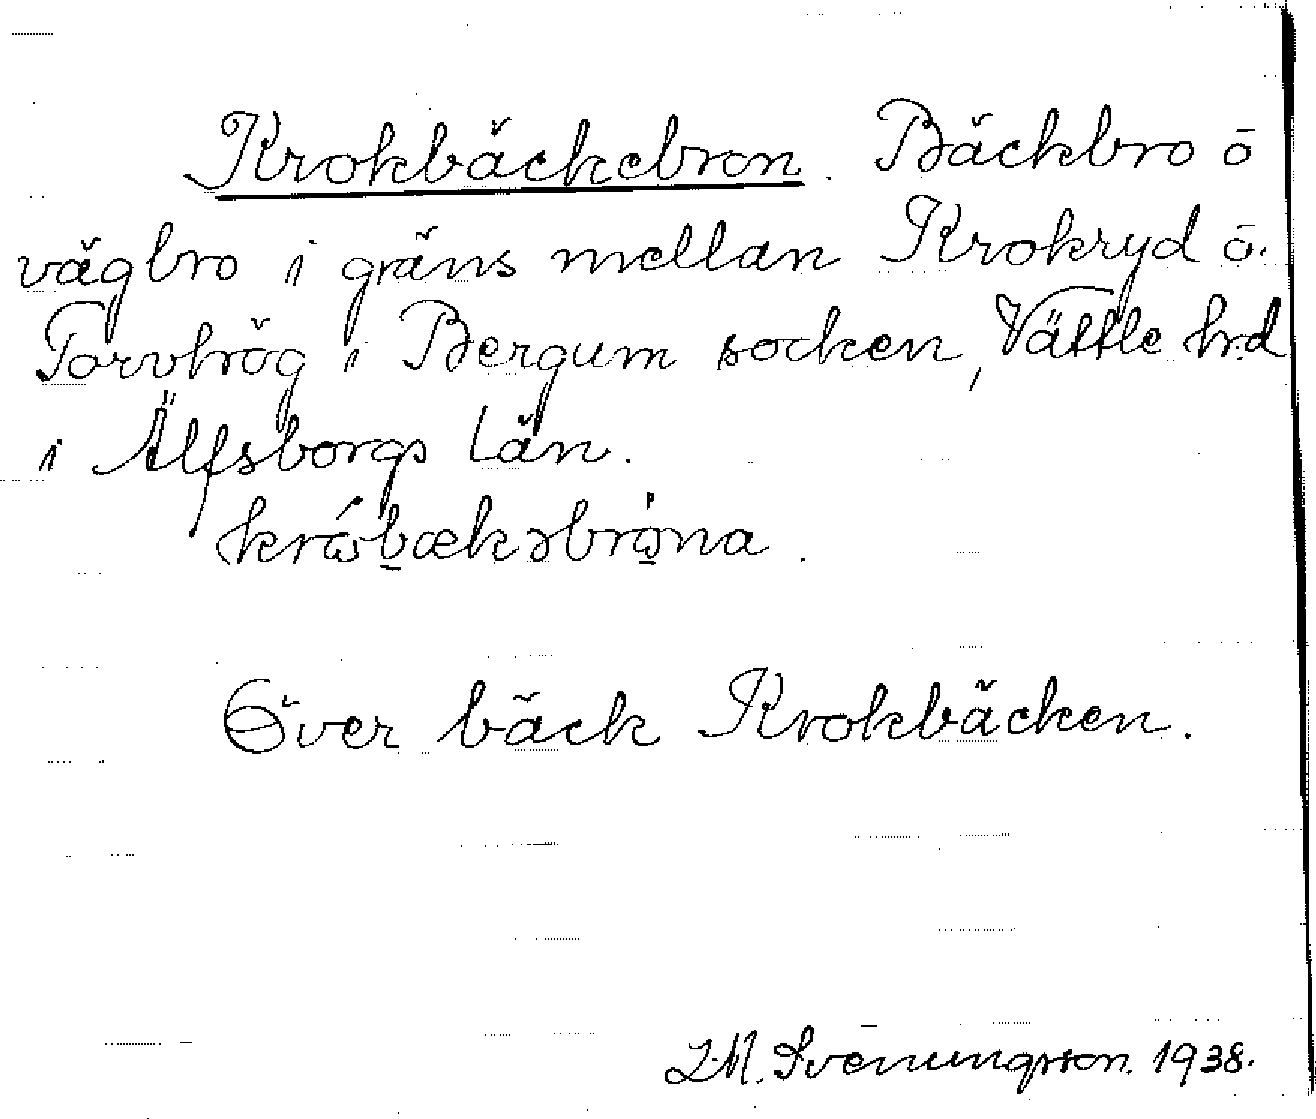 Krokbäckebron. Bäckbro o
vägbro i gräns mellan Krokryd o.
Torvhög i Bergum socken, Vättle hrd
i Älfsborgs Län.
krɷ́bækəbrɷ̀na.
Över bäck Krokbäcken.
J.M. Svenungsson. 1938.